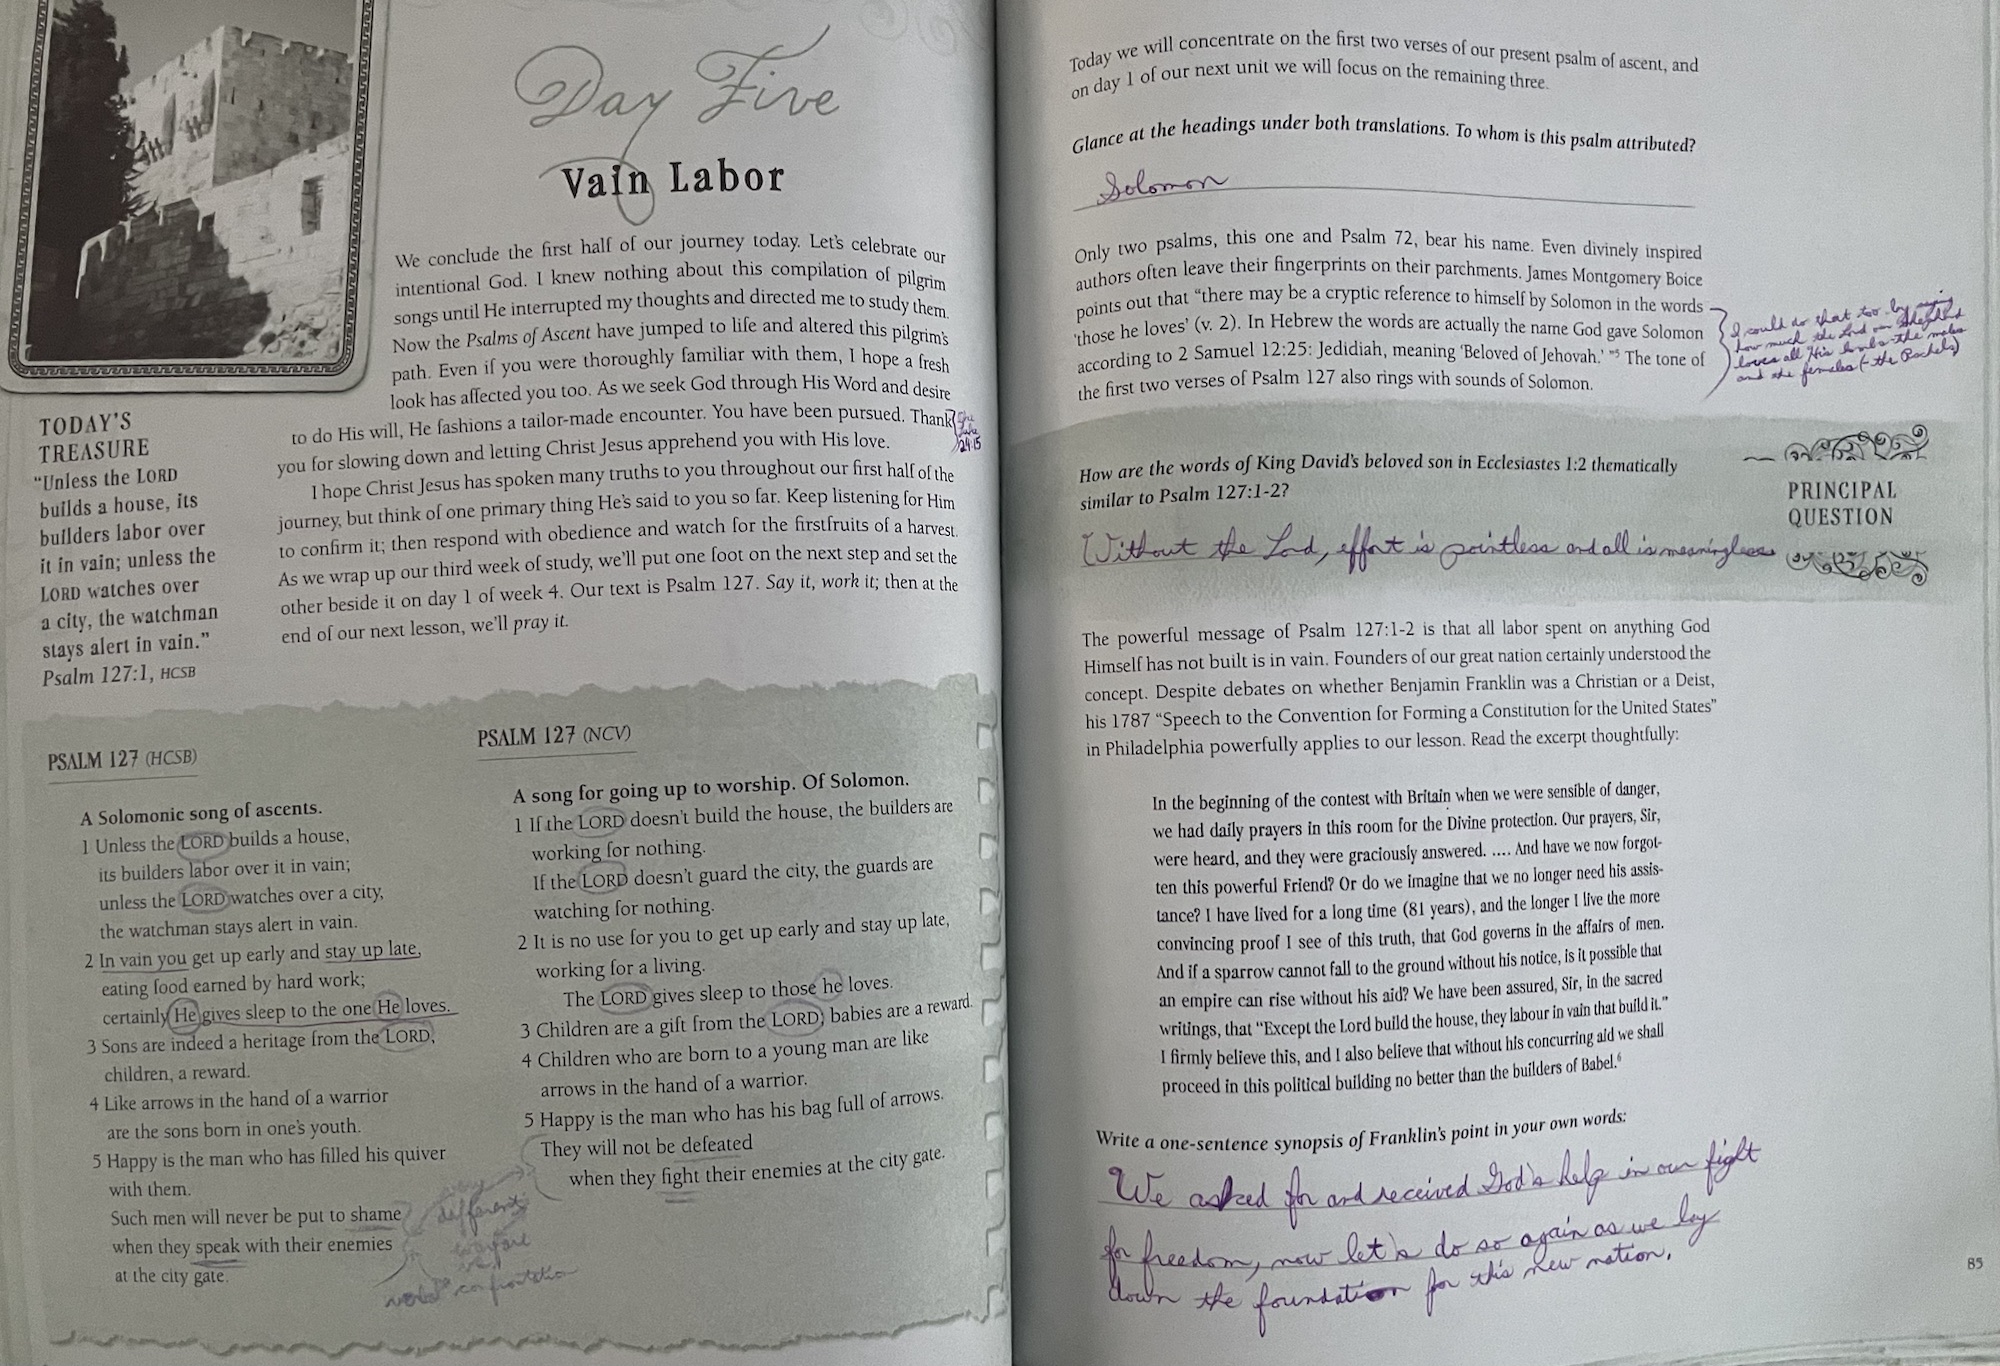 Day Five
Vain Labor
We conclude the first half of our journey today. Let's celebrate our
intentional God. I knew nothing about this compilation of pilgrim
songs until He interrupted my thoughts and directed me to study them.
Now the Psalms of Ascent have jumped to life and altered this pilgrim's
path. Even if you were thoroughly familiar with them, I hope a fresh
look has affected you too. As we seek God through His Word and desire
to do His will, He fashions a tailor-made encounter. You have been pursued. Thank
you for slowing down and letting Christ Jesus apprehend you with His love.
24:15
I hope Christ Jesus has spoken many truths to you throughout our first half of the
journey, but think of one primary thing He's said to you so far. Keep listening for Him
to confirm it; then respond with obedience and watch for the firstfruits of a harvest.
As we wrap up our third week of study, we'll put one foot on the next step and set the
other beside it on day 1 of week 4. Our text is Psalm 127. Say it, work it; then at the
end of our next lesson, we'll pray it.
TODAY'S
TREASURE
"Unless the LORD
builds a house, its
builders labor over
it in vain; unless the
LORD watches over
a city, the watchman
stays alert in vain."
Psalm 127:1, HCSB
PSALM 127 (HCSB)
A Solomonic song of ascents.
1 Unless the LORD builds a house,
its builders labor over it in vain;
unless the LORD watches over a city,
the watchman stays alert in vain.
2 In vain you get up early and stay up late,
eating food earned by hard work;
certainly He gives sleep to the one He loves.
3 Sons are indeed a heritage from the LORD,
children, a reward.
4 Like arrows in the hand of a warrior
are the sons born in one's youth.
5 Happy is the man who has filled his quiver
with them.
Such men will never be put to shame
when they speak with their enemies
at the city gate.
PSALM 127 (NCV)
A song for going up to worship. Of Solomon.
1 If the LORD doesn't build the house, the builders are
working for nothing.
If the LORD doesn't guard the city, the guards are
watching for nothing.
2 It is no use for you to get up early and stay up late,
working for a living.
The LORD gives sleep to those he loves.
3 Children are a gift from the LORD; babies are a reward.
4 Children who are born to a young man are like
arrows in the hand of a warrior.
5 Happy is the man who has his bag full of arrows.
They will not be defeated
when they fight their enemies at the city gate.
different
confrontation
Today we will concentrate on the first two verses of our present psalm of ascent, and
on day 1 of our next unit we will focus on the remaining three.
Glance at the headings under both translations. To whom is this psalm attributed?
Solomon
Only two psalms, this one and Psalm 72, bear his name. Even divinely inspired
authors often leave their fingerprints on their parchments. James Montgomery Boice
points out that "there may be a cryptic reference to himself by Solomon in the words
'those he loves' (v. 2). In Hebrew the words are actually the name God gave Solomon
according to 2 Samuel 12:25: Jedidiah, meaning 'Beloved of Jehovah.' "5 The tone of
the first two verses of Psalm 127 also rings with sounds of Solomon.
I could do that too by saying
how much the Lord our Shepherd
loves all His lambs the males
and the females (the Rachels)
How are the words of King David's beloved son in Ecclesiastes 1:2 thematically
similar to Psalm 127:1-2?
Without the Lord, effort is pointless and all is meaningless
PRINCIPAL
QUESTION
The powerful message of Psalm 127:1-2 is that all labor spent on anything God
Himself has not built is in vain. Founders of our great nation certainly understood the
concept. Despite debates on whether Benjamin Franklin was a Christian or a Deist,
his 1787 "Speech to the Convention for Forming a Constitution for the United States"
in Philadelphia powerfully applies to our lesson. Read the excerpt thoughtfully:
In the beginning of the contest with Britain when we were sensible of danger,
we had daily prayers in this room for the Divine protection. Our prayers, Sir,
were heard, and they were graciously answered. .... And have we now forgot-
ten this powerful Friend? Or do we imagine that we no longer need his assis-
tance? I have lived for a long time (81 years), and the longer I live the more
convincing proof I see of this truth, that God governs in the affairs of men.
And if a sparrow cannot fall to the ground without his notice, is it possible that
an empire can rise without his aid? We have been assured, Sir, in the sacred
writings, that "Except the Lord build the house, they labour in vain that build it."
I firmly believe this, and I also believe that without his concurring aid we shall
proceed in this political building no better than the builders of Babel.6
Write a one-sentence synopsis of Franklin's point in your own words:
We asked for and received God's help in our fight
for freedom, now let's do so again as we lay
down the foundation for this new nation.
85